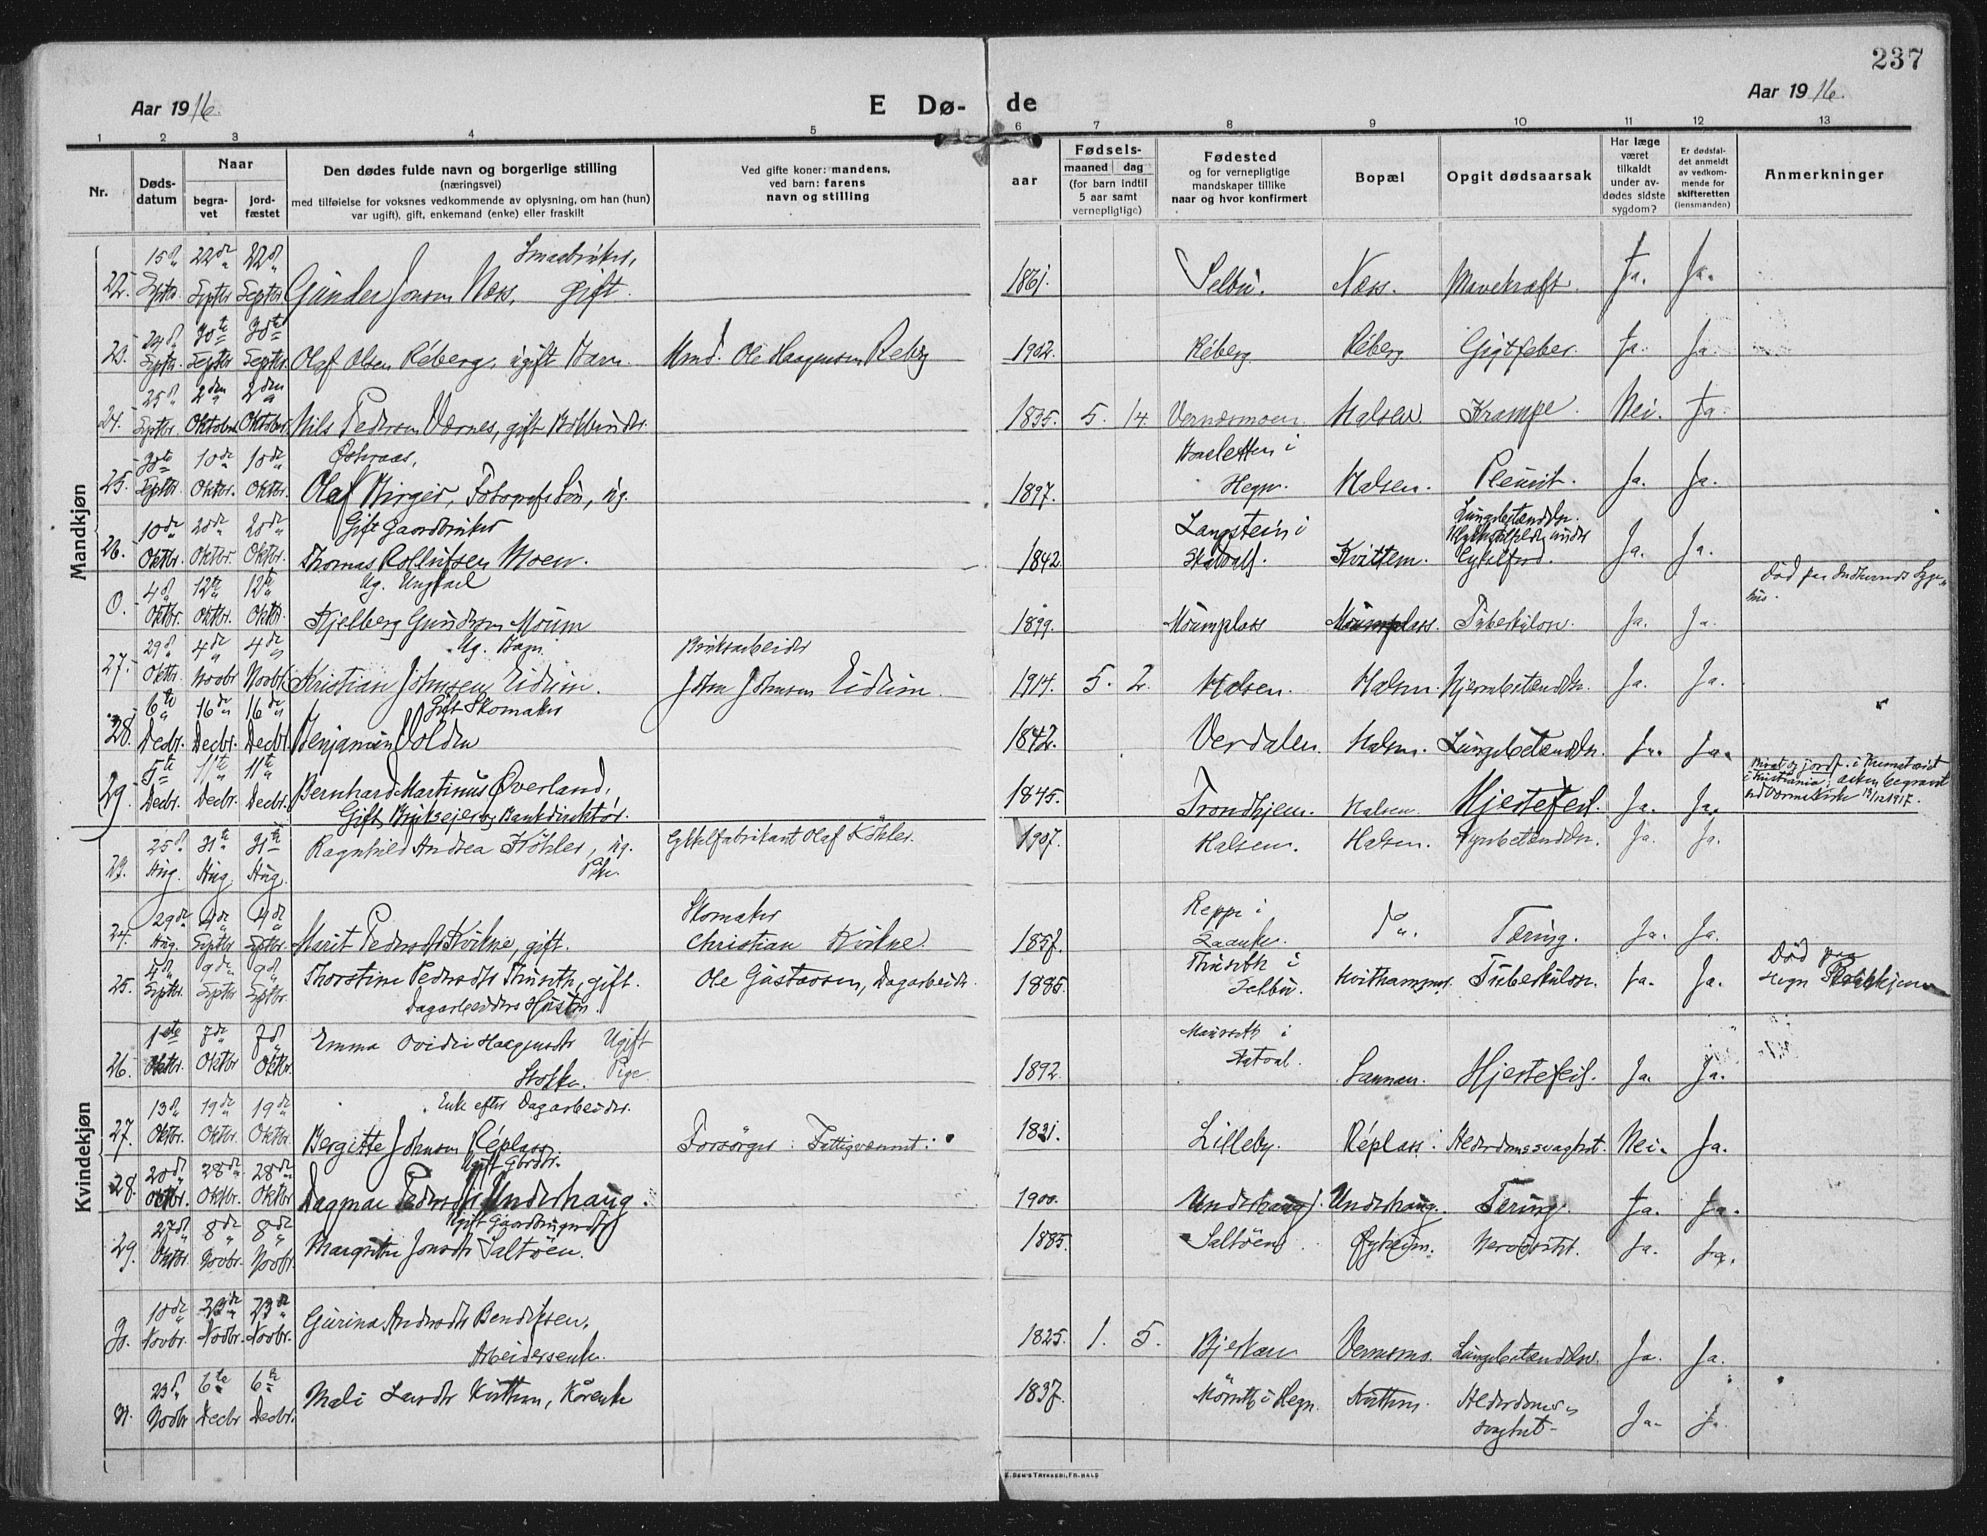 237
Aar 1916. E Dø- de Aar 1916.
1 2 3 4 5 6 7 8 9 10 11 12 13
Nr. Døds-datum Naar begra-vet jord-fæstet
Den dødes fulde navn og borgerlige stilling
(næringsvei)
med tilføielse for voksnes vedkommende av oplysning, om han (hun)
var ugift), gift, enkemand (enke) eller fraskilt
Ved gifte koner: mandens,
ved barn: farens
navn og stilling
aar
Fødsels-
maaned dag
(for barn indtil
5 aar samt
vernepligtige)
Fødested
og for vernepligtige
mandskaper tillike
naar og hvor konfirmert
Bopæl
Opgit dødsaarsak
Har læge
været
tilkaldt
under av-
dødes sidste
sygdom?
Er dødsfal-
det anmeldt
av vedkom-
mende for
skifteretten
(lensmanden)
Anmerkninger
Mandkjøn
Smaabruker,
22. 15d Septbr. 22de Septbr. 22d Septbr. Gunder Jonsen Næss, gift. 1861. Selbu. Næss. Mavekræft. Ja. Ja.
23. 24d Septbr. 30te Septbr 30te Septbr. Olaf Olsen Réberg, ugift Barn Ole Haagensen Reberg 1902. Réberg. Réberg Gigtfeber. Ja. Ja.
24. 25d Septbr. 2den Oktober 2den Oktober Nils Pedersen Værnes, gift 1835. 5. 14. Halsen Krampe. Nei. Ja.
25. 30te Septbr. 10de Oktbr. 10de Oktbr. Olaf Birger, Fotografs Søn, ug. 1897. Hegn. Halsen. Pleurit. Ja. Ja.
Gift Gaardbruker
26. 10de Oktbr. 20de Oktbr. 20de Oktbr. Thomas Rollufsen Moen. 1842 Langstein i Skatval. Kvittem. Lungebetændelse. Ja. Ja.
Ug. Ungkarl
0. 4d Oktbr. 12te Oktbr. 12te Oktbr. Kjelberg Gundersen Moum 1899. Moumplass Moumplass. Tuberkulose. Ja. Ja. Død paa Indherreds Syge-hus.
Ug. Barn. Bruksarbeider
27. 29d Oktbr. 4de Novbr 4de Novbr. Kristian Johnsen Eidum. John Johnsen Eidum. 1914. 5. 2. Halsen. Halsen. Hjernebetændelse. Ja. Ja.
Gift Skomaker
28. 6te Decbr. 16de Decbr. 16de Decbr. Benjamin Volden 1842. Verdalen. Halsen. Lungebetændelse. Ja. Ja.
29. 5te Decbr. 11te Decbr. 11te Decbr. Bernhard Martinus Øverland, 1845. Trondhjem. Halsen. Hjertefeil. Ja. Ja.
Gift, Brukseier og Bankdirektør.
i Kristiania; asken begravet
ved Værnes Kirke 1917.
Kvindekjøn
23. 25d Aug. 31te Aug. 31te Aug. Ragnhild Andrea Köhler, ug. Pike Cykkelfabrikant Olaf Köhler. 1907. Halsen. Halsen. Ja. Ja.
Skomaker
24. 29de Aug. 4de Septbr 4de Septbr Marit Pedersdtr Kvikne, gift. Christian Kvikne. 1857. Reppe i Laanke. do. Tæring. Ja. Ja.
25. 4d Septbr. 9de Septbr 9de Septbr. Thorstine Pedersdtr Thuseth, gift. Ole Gustavsen, Dagarbeider. 1885. Thuseth i Selbu. Kvithammer. Tuberkulose. Ja. Ja. Død paa
Dagarbeiders Hustru. Hegn
26. 1ste Oktbr. 7de Oktbr 7d Oktbr. Emma Ovidie Haagensdtr Ugift
Stokke. Pige. 1892. Skatval. Sannan. Hjertefeil. Ja. Ja.
Enke efter Dagarbeider.
27. 13d Oktbr. 19de Oktbr. 19de Oktbr. Bergitte Johnsen Réplass Forsørges: Fattigvæsenet. 1831. Lilleby. Réplass. Alderdomssvaghet. Nei. Ja.
28. 20d Oktbr. 28de Oktbr. 28de Oktbr Dagmar Pedersdtr Underhaug. 1900. Underhaug. Underhaug. Tæring. Ja. Ja.
29. 27d Oktbr 8de Novbr. 8de Novbr. Margrethe Jonsdtr Saltøen. 1885. Saltöen. Öyheim. Ja. Ja.
30. 10de Novbr. 23de Novbr. 23de Novbr. Gurina Andersdtr Bendiksen, 1825. 1. 5. Lungebetændelse. Ja. Ja.
Arbeidersenke.
31. 23d Novbr 6te Decbr 6te Decbr. Mali Larsdtr Kvittem, Kårenke 1837. i Hegn. Kvittem. Alderdoms-
svaghet. Ja. Ja.
E. SEM'S TRYKKERI, FR.HALD